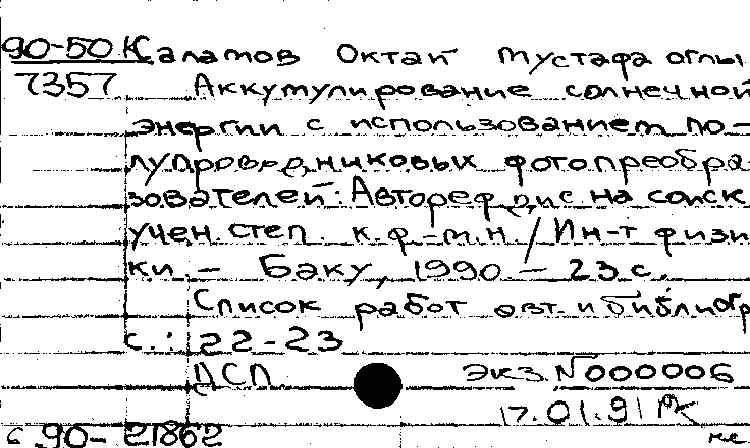 90-50К Саламов Октай Мустафа оглы
7357 Аккумулирование солнечной
энергии с использованием по-
лупроводниковых фотопреобра
зователей: Автореф дис. на соиск
учен. степ. к.ф.-м.н / Ин-т физи
ки. - Баку, 1990 - 23 с.
Список работ авт. и библиогр
с.: 22-23
ДСП экз. N000006
17.01.91
с 90- 21862 нс